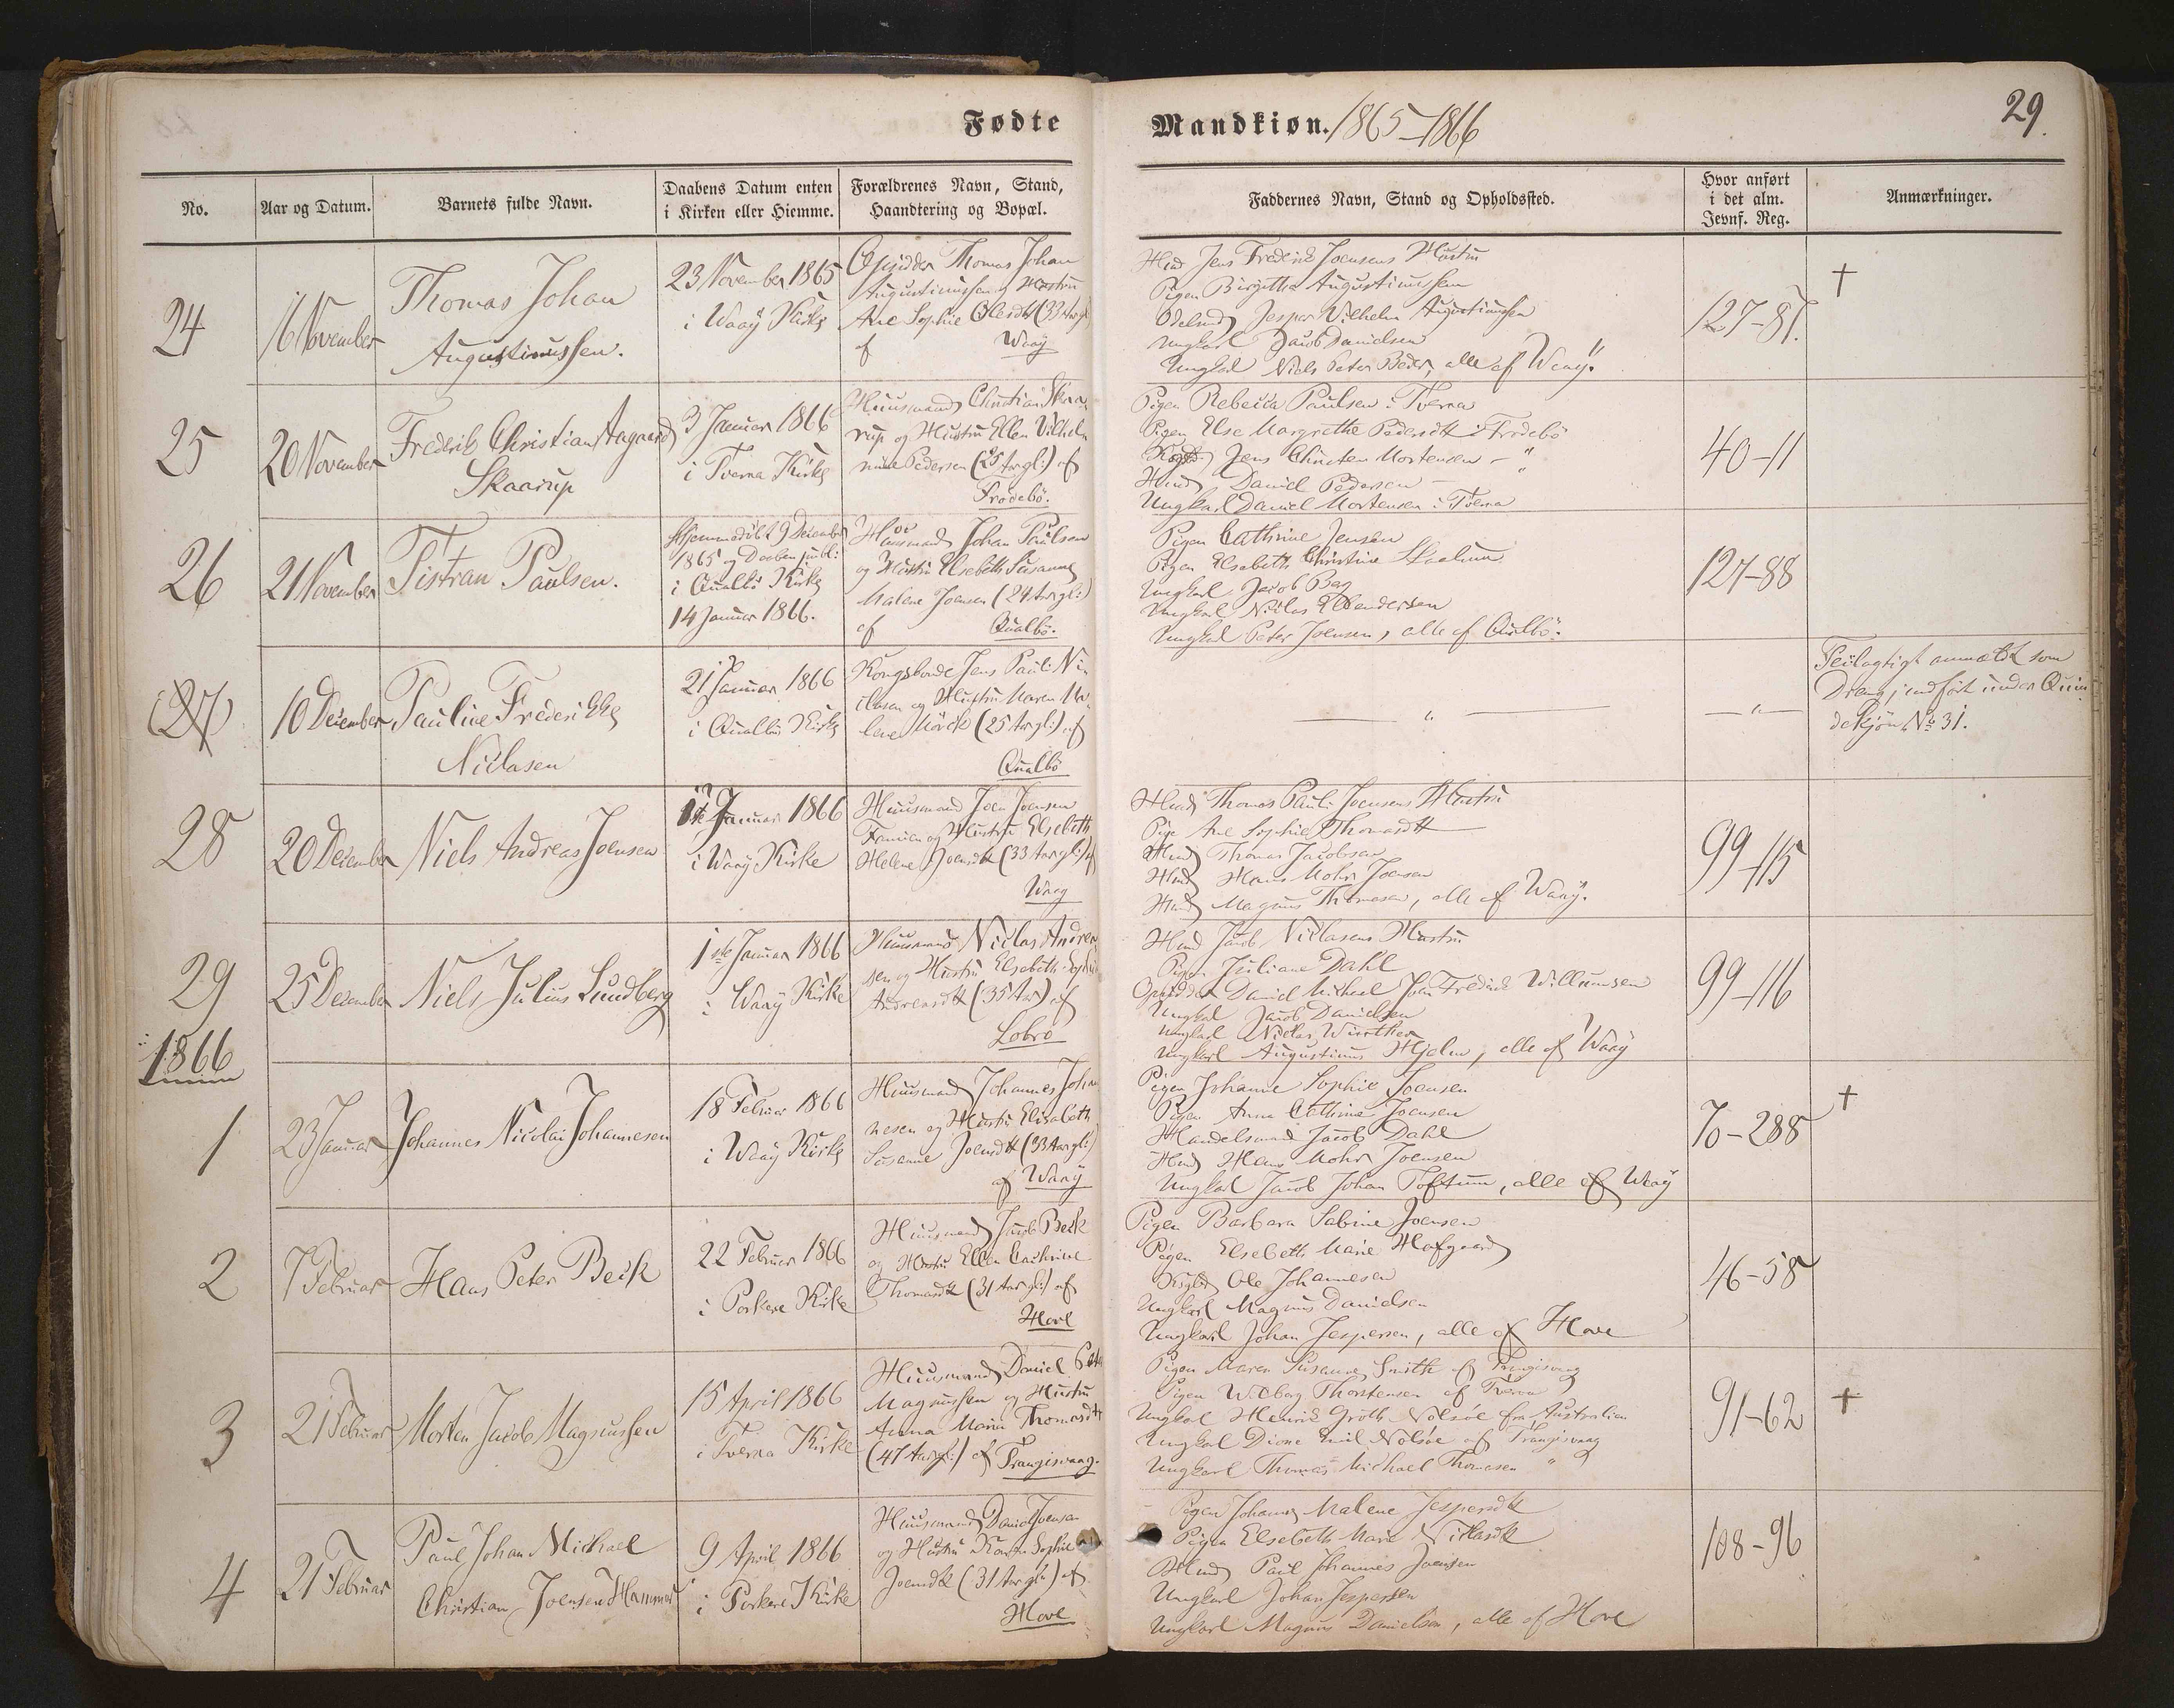 Fødte
Mandkiøn. 1865-1866
29.
No.
Aar og Datum.
Barnets fulde Navn.
Daabens Datum enten
i Kirken eller Hiemme.
Forældrenes Navn, Stand,
Haandtering og Bopæl.
Faddernes Navn, Stand og Opholdssted.
Hvor anført
i det alm.
Jevnf. Reg.
Anmærkninger.
24
16 November
Thomas Johan
Augustinussen.
23 November 1865
i Waaÿ Kirke
Opsidder Thomas Johan
Augustinussen Hustru
Ane Sophie Olesdtt (33 Aar gl:)
af Waaÿ
Hmd Jens Frederik Joensens Hustru
Pigen Birgitha Augustinussen
Odelsmd Jesper Vilhelm Augustinussen
Ungkarl Jacob Danielsen
Ungkarl Niels Peter Beder, alle af Waaÿ.
127-87.
†
25
20 November
Frederik Christian Aagaard
Skaarup
3 Januar 1866
i Tverna Kirke
Huusmand Christian Skaa-
rup og Hustru Ellen Vilhel-
mine Pedersen (25 Aar gl:) af
Frodebö.
Pigen Rebecca Paulsen i Tverna
Pigen Else Margrethe Pedersdtt i Frodebö
Jens Christen Mortensen - "
Hmd Daniel Pedersen - "
Ungkarl Daniel Mortensen i Tverna
40-11
26
21 November
Tistran Paulsen.
Hjemmedöbt 9 December
1865 og Daaben publ:
i Qualbö Kirke
14 Januar 1866.
Huusmand Johan Paulsen
og Hustru Elsebeth Susanne
Malene Joensen (24 Aar gl:)
af Qualbö.
Pigen Cathrine Jensen
Pigen Elsebeth Christine
Ungkarl Jacob
Ungkarl Niclas
Ungkarl Peter Joensen, alle af Qualbö.
127-88
27
10 December
Pauline Frederikke
Niclasen
21 Januar 1866
i Qualbö Kirke
Kongsbonde Jens Pauli Ni-
clasen og Hustru Maren Ma-
lene Mörck (25 Aar gl:) af
Qualbö
— " —
— " —
Feilagtigt anmeldt som
Dreng; indfört under Quin-
dekjön No 31.
28
20 December
Niels Andreas Joensen
1ste Januar 1866
i Waaÿ Kirke
Huusmand Joen Joensen
og Hustru Elsebeth
Helene Joensdtt (33 Aar gl:) af
Waaÿ
Hmd Thomas Pauli Joensens Hustru
Pige Ane Sophie Thomasdtt
Hmd Thomas Jacobsen
Hmd Hans Mohr Joensen
Hmd Magnus Thomasen, alle af Waaÿ.
99-115
29
25 December
Niels Julius Lundberg
1ste Januar 1866
i Waaÿ Kirke
Huusmand Niclas Andrea-
sen og Hustru Elsebeth Sophie
Andreasdtt (35 Aar) af
Lobrö
Hmd Jacob Niclasens Hustru
Pigen Juliane Dahl
Opsidder Daniel Michael Joen Fredrik Willumsen
Ungkarl Jacob Danielsen
Ungkarl Niclas
Ungkarl Augustinus Hjelm, alle af Waaÿ
99-116
1866
1
23 Januar
Johannes Nicolai Johannesen
18 Februar 1866
i Waaÿ Kirke
Huusmand Johannes Johan-
nesen og Hustru Elisabeth
Susanne Joensdtt (33 Aar gl:)
af Waaÿ
Pigen Johanne Sophie Joensen
Pigen Anna Cathrine Joensen
Handelsmand Jacob Dahl
Hmd Hans Mohr Joensen
Ungkarl Jacob Johan Toftum, alle af Waaÿ
70-288
†
2
7 Februar
Hans Peter Beck
22 Februar 1866
i Porkere Kirke
Huusmand Jacob Beck
og Hustru Ellen Cathrine
Thomasdtt (31 Aar gl:) af
Hove
Pigen Barbara Sabine Joensen
Pigen Elsebeth Marie Hofgaard
Ole Johannesen
Ungkarl Magnus Danielsen
Ungkarl Johan Jespersen, alle af Hove
46-58
3
21 Februar
Morten Jacob Magnussen
15 April 1866
i Tverna Kirke
Huusmand Daniel
Magnussen og Hustru
Anna Maria Thomasdtt
(47 Aar gl:) af Trangisvaag.
Pigen Maren Susanne Smith af Trangisvaag
Pigen Wilborg Thorstensen af Tverna
Ungkarl Henrik Groth Nolsöe fra Australien
Ungkarl Dione Emil Nolsöe af Trangisvaag
Ungkarl Thomas Michael Thomasen "
91-62
†
4
21 Februar
Paul Johan Michael
Christian Joensen Hammer
9 April 1866
i Porkere Kirke
Huusmand Daniel Joensen
og Hustru Karen Sophie
Joensdtt (31 Aar gl:) af
Hove
Pigen Johanne Malene Jespersdtt
Pigen Elsebeth Marie Niclasdtt
Hmd Paul Johannes Joensen
Ungkarl Johan Jespersen
Ungkarl Magnus Danielsen, alle af Hove
108-96